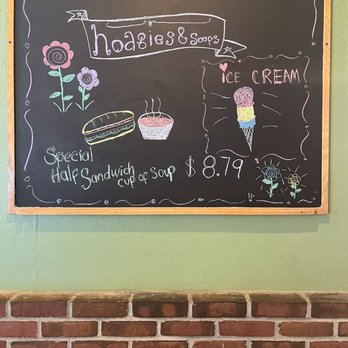 hoagies & Soups
iCE CREAM
Special
Half Sandwich
cup of soup $8.79